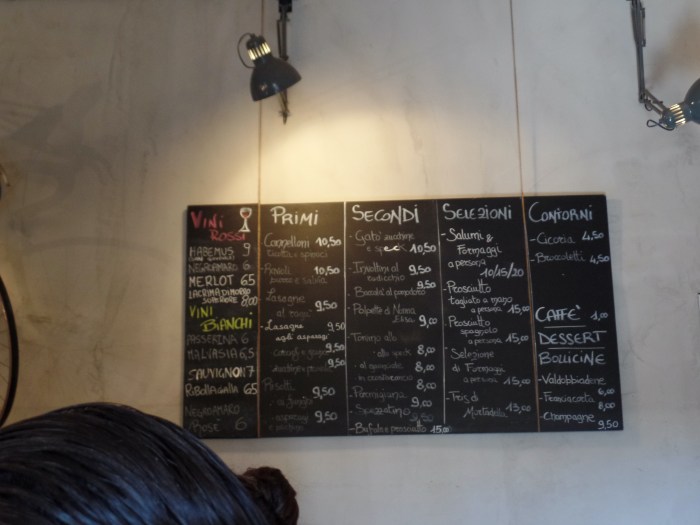 VINI
ROSSI
HABEMUS 9
NEGROAMARO 6
MERLOT 65
LACRIMA DI MORRO
SUPERIORE 8,00
VINI
BIANCHI
PASSERINA 6
MALVASIA 6,5
SAUVIGNON 7
RIBOLLA GIALLA 65
NEGROAMARO
ROSÈ 6
PRIMI
Cannelloni 10,50
Ravioli 10,50
burro e salvia
Lasagne
al ragù 9,50
- Lasagne 9,50
agli asparagi
9,50
9,50
Risotti 9,50
9,50
SECONDI
- Gatò zucchine
e speck 10,50
- Involtini al
radicchio 9,50
- Baccalà al pomodoro
- Polpette di Nonna
Elisa 9,00
- Tomino allo
- allo speck 8,00
8,00
8,00
- Parmigiana 9,50
- Spezzatino 9,50
- Bufala e prosciutto 15,00
SELEZIONI
- Salumi &
Formaggi
a persona
10/15/20
- Prosciutto
tagliato a mano
a persona 15,00
- Prosciutto
spagnolo
a persona 15,00
- Selezione
di Formaggi
a persona 15,00
- Tris di
Mortadella 13,00
CONTORNI
- Cicoria 4,50
- Broccoletti 4,50
CAFFE' 1,00
DESSERT
BOLLICINE
- Valdobbiadene 6,00
- Franciacorta 8,00
- Champagne 9,50